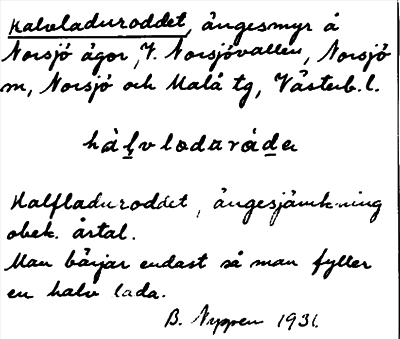 Halvladuroddet, ängesmyr å
Norsjö ägor, V. Norsjövallen, Norsjö
sn, Norsjö och Malå tg, Västerb. l.
hàl̲vladarád̲e
Halfladuroddet, ängesjämkning
obek. årtal.
Man bärjar endast så man fyller
en halv lada.
B. Nygren 1931.